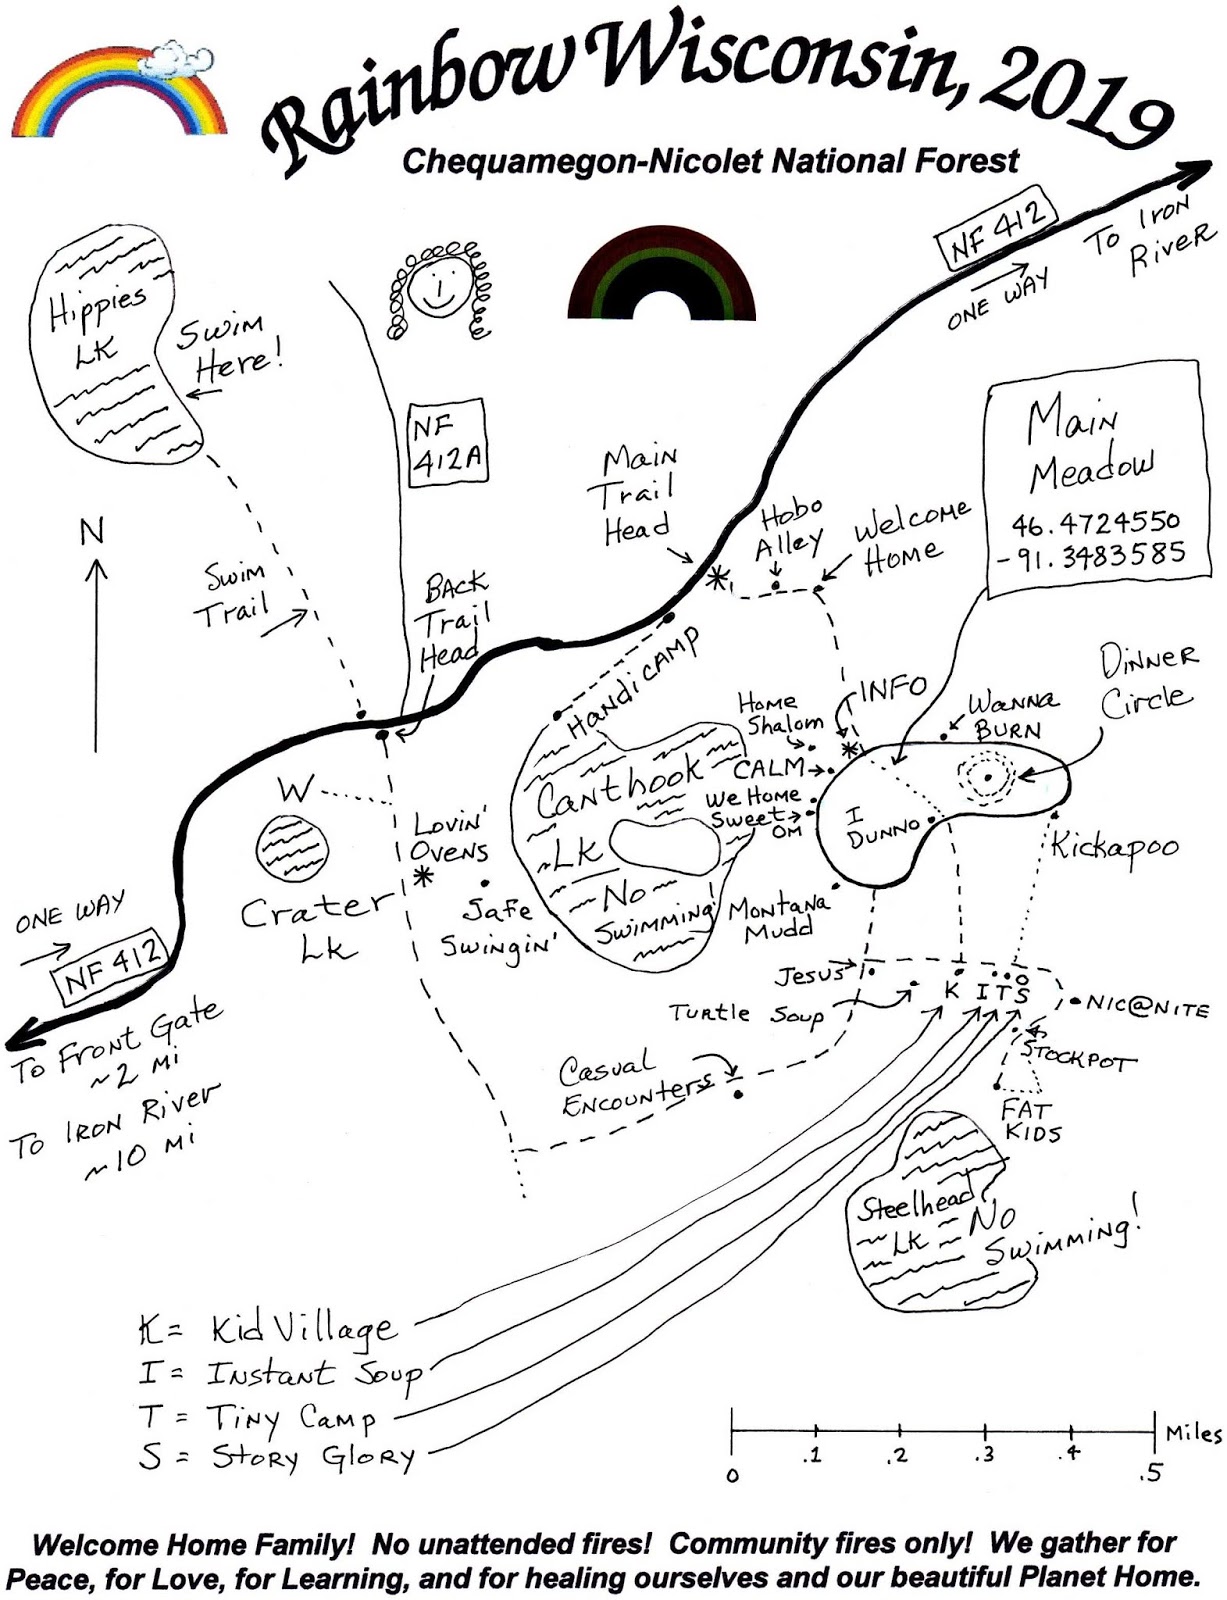 Rainbow Wisconsin, 2019
Chequamegon-Nicolet National Forest
NF 412
To Iron
River
ONE WAY
Hippies
LK
Swim
Here!
NF
412A
Main
Meadow
46.4724550
-91.3483585
Main
Trail
Head
Hobo
Alley
Welcome
Home
N
Swim
Trail
Back
Trail
Head
HandiCAMP
INFO
Dinner
Circle
Wanna
Burn
Home
Shalom
CALM
We Home
Sweet
OM
I
DUNNO
Kickapoo
W
Lovin'
Ovens
Canthook
Lk
No
Swimming
Crater
Lk
Safe
Swingin'
Montana
Mudd
ONE WAY
NF 412
To Front Gate
~2 mi
To Iron River
~10 mi
Jesus
Turtle Soup
K I T S
NIC@NITE
STOCKPOT
Casual
Encounters
FAT
KIDS
Steelhead
LK
No
Swimming!
K = Kid Village
I = Instant Soup
T = Tiny Camp
S = Story Glory
Miles
0 .1 .2 .3 .4 .5
Welcome Home Family! No unattended fires! Community fires only! We gather for
Peace, for Love, for Learning, and for healing ourselves and our beautiful Planet Home.